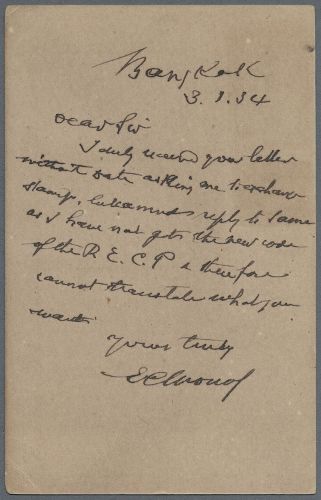 Bangkok
3.1.34
Dear Sir
I duly received your letter
without date asking me to exchange
stamps, but cannot reply to same
as I have not got the new code
of the R. E. C. P & therefore
cannot translate what you
wants
Yours truly